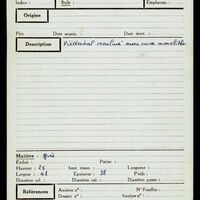 Indice : Style : Emplacem. :
Origine
Prix Date acquis. : Date inscr. :
Description Piédestal mouluré avec cuve monolithe
Matière : grès
Enfoui : Patine :
Hauteur : 25 haut. totale : Longueur :
Largeur : 42 Epaisseur : 38 Poids :
Diamètre : Diamètre col. : Diamètre panse :
Références Anciens n° : N° Fouilles :
Dessin n° : Analyse n° :